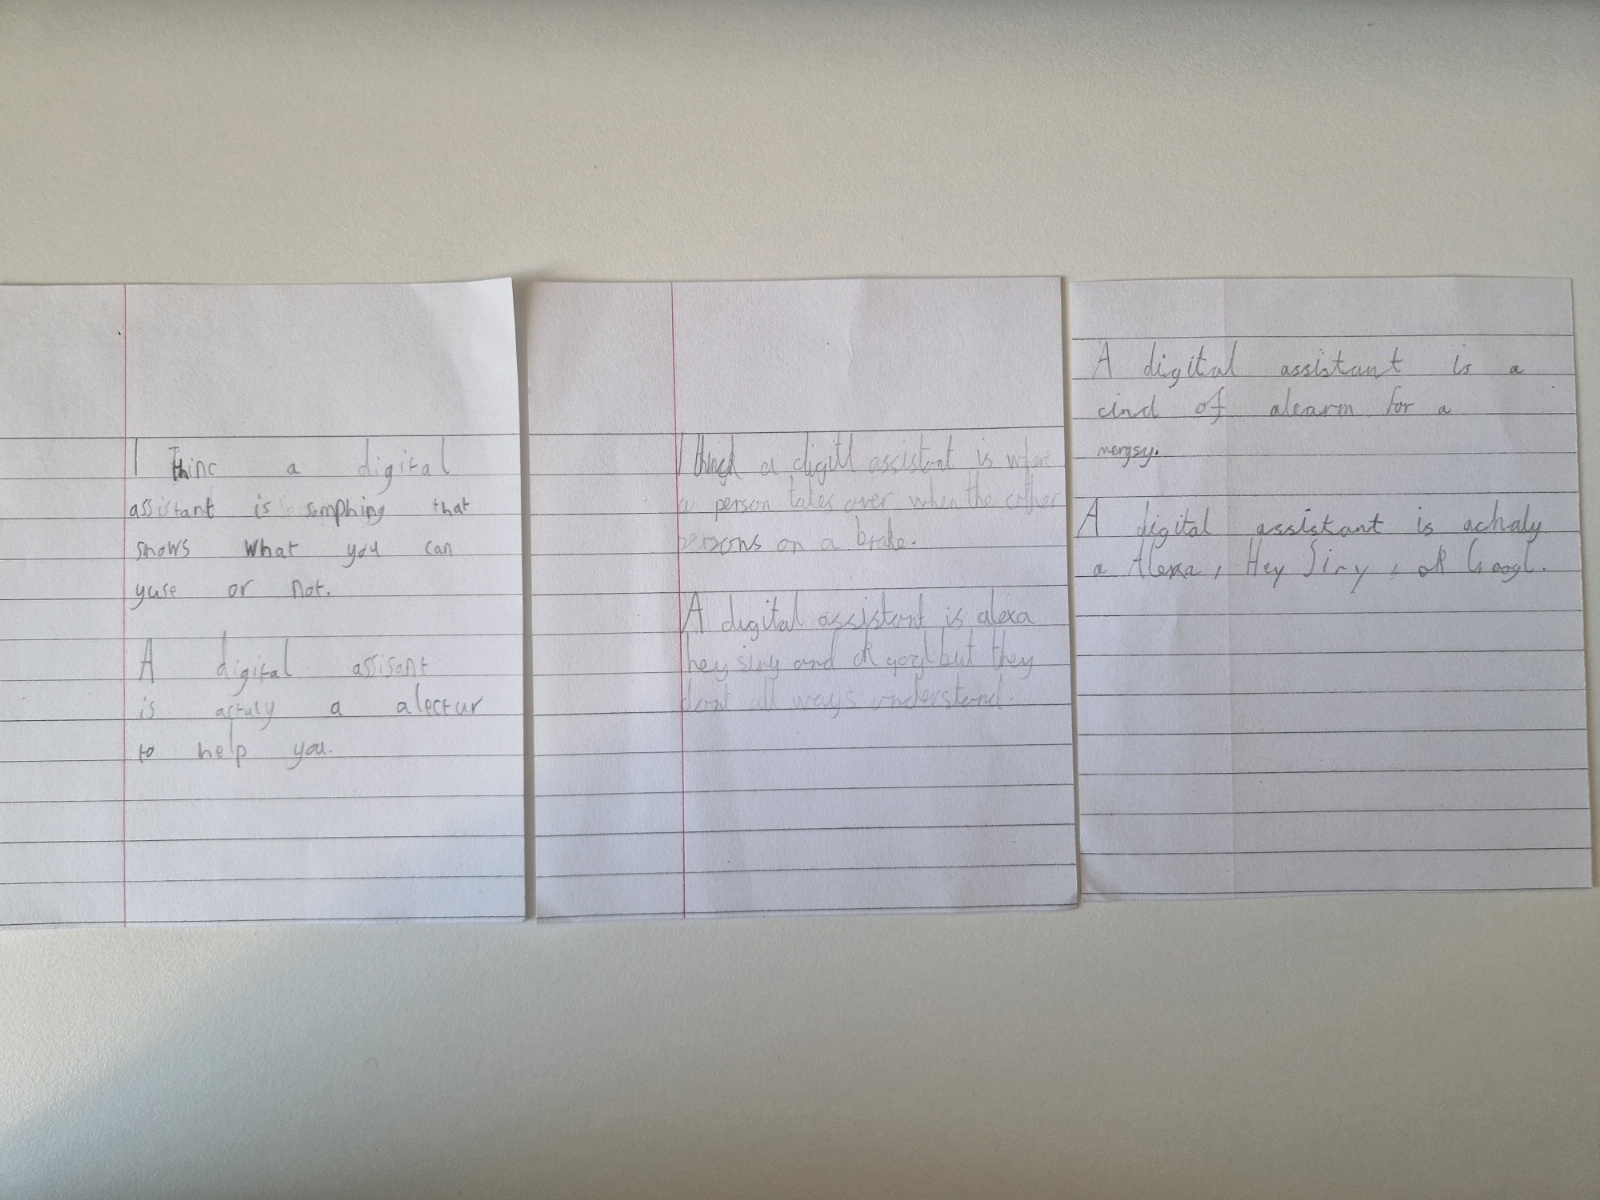 I Thinc a digital
assistant is somphing that
shows what you can
yuse or not.
A digital assisant
is actuly a alectur
to help you.
I thingk a digitl assistant is where
a person takes over when the other
persons on a brake.
A digital assistant is alexa
hey siry and ok googl but they
dont all ways understand.
A digital assistant is a
cind of alearm for a
mergsy.
A digital assistant is achaly
a Alexa, Hey Siry, ok Googl.